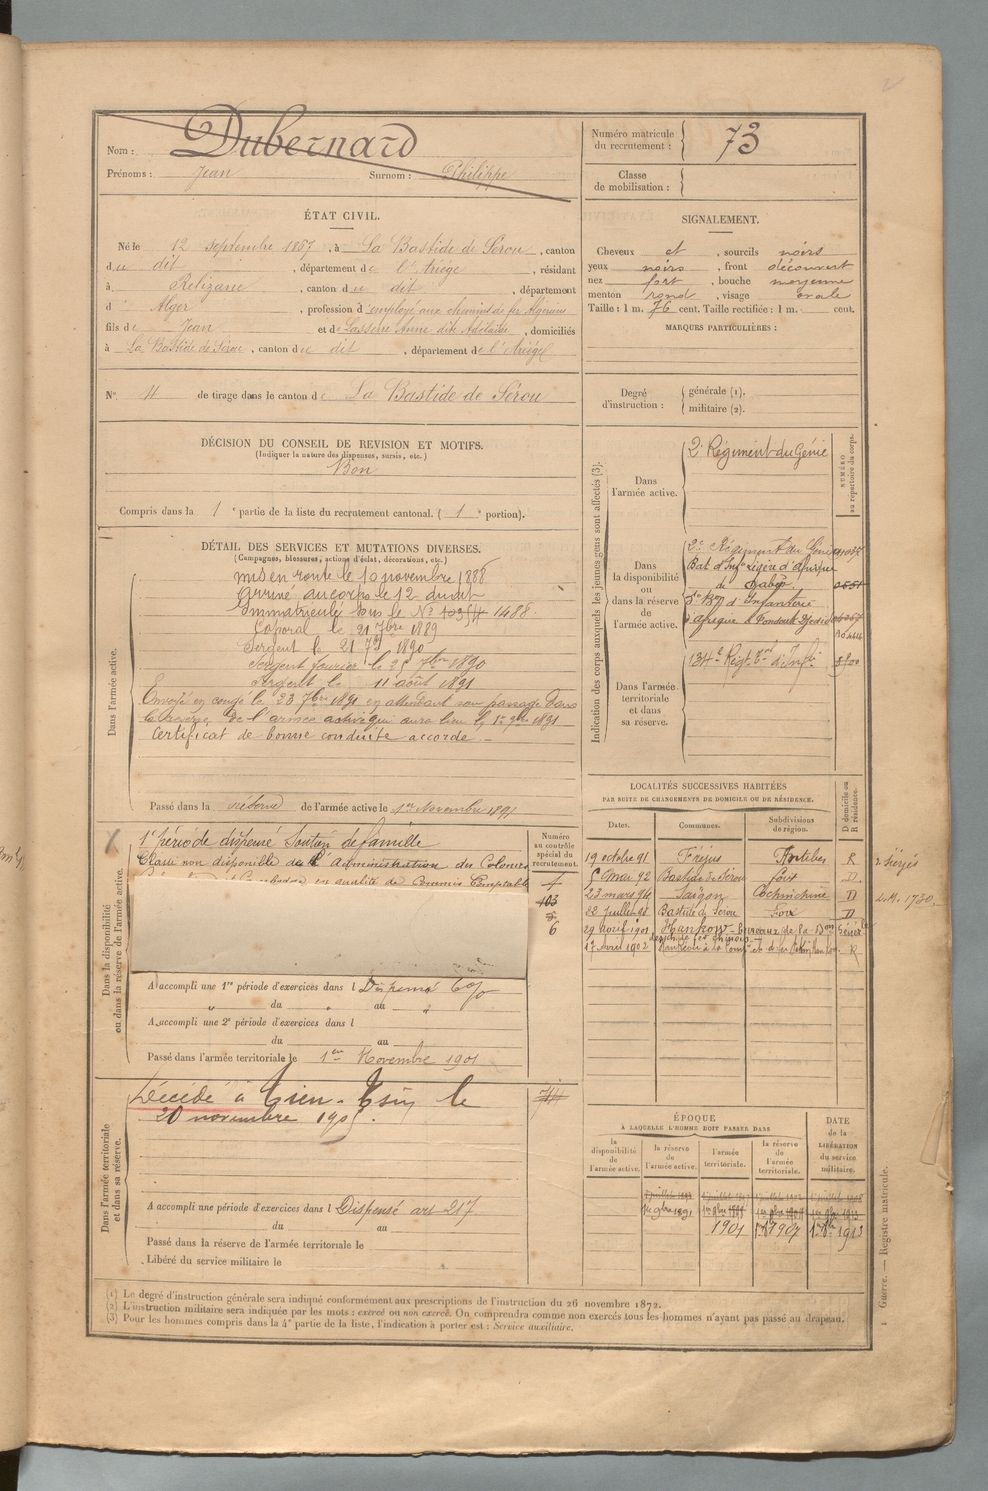 Nom : Dubernard
Prénoms : Jean Surnom : Philippe
Numéro matricule du recrutement : 73
Classe de mobilisation :
ÉTAT CIVIL.
Né le 12 septembre 1867, à La Bastide de Sérou, canton
du dit, département de l'Ariège, résidant
à Relizane, canton du dit, département
d' Alger, profession d'employé aux chemins de fer Algériens
fils de Jean et de Lasserre Anne dite Adélaïde, domiciliés
à La Bastide de Sérou, canton du dit, département de l'Ariège
SIGNALEMENT.
Cheveux et, sourcils noirs
yeux noirs, front découvert
nez fort, bouche moyenne
menton rond, visage ovale
Taille : 1 m. 76 cent. Taille rectifiée : 1 m. cent.
MARQUES PARTICULIÈRES :
N° 11 de tirage dans le canton de La Bastide de Sérou
Degré d'instruction : générale (1).
militaire (2).
DÉCISION DU CONSEIL DE REVISION ET MOTIFS.
(Indiquer la nature des dispenses, sursis, etc.)
Bon
Compris dans la 1e partie de la liste du recrutement cantonal. (1e portion).
DÉTAIL DES SERVICES ET MUTATIONS DIVERSES.
(Campagnes, blessures, actions d'éclat, décorations, etc.)
Dans l'armée active.
Mis en route le 10 novembre 1888
Arrivé au corps le 12 dudit
Immatriculé sous le N° 10354 1488.
Caporal le 21 7bre 1889
Sergent le 21 7bre 1890
Sergent fourrier le 25 7bre 1890
Sergent le 11 août 1891
Envoyé en congé le 23 7bre 1891 en attendant son passage dans
la réserve de l'armée active qui aura lieu le 1er 9bre 1891
Certificat de bonne conduite accordé
Passé dans la réserve de l'armée active le 1er Novembre 1891
Indication des corps auxquels les jeunes gens sont affectés (3).
NUMÉRO au répertoire du corps.
Dans l'armée active.
2e Régiment du Génie
Dans la disponibilité ou dans la réserve de l'armée active.
2e Régiment du Génie
Bat d'Inf légère d'Afrique
de Gabès
3e Bon d'Infanterie
d'Afrique
Dans l'armée territoriale et dans sa réserve.
134e Régt d'Infie
Dans la disponibilité ou dans la réserve de l'armée active.
1e période dispensé Soutien de famille
Classé non disponible de l'Administration des Colonies
en qualité de Commis Comptable
Numéro au contrôle spécial du recrutement.
1
103
5
6
A accompli une 1re période d'exercices dans l Dispensé
du au
A accompli une 2e période d'exercices dans l
du au
Passé dans l'armée territoriale le 1er Novembre 1901
LOCALITÉS SUCCESSIVES HABITÉES
PAR SUITE DE CHANGEMENTS DE DOMICILE OU DE RÉSIDENCE.
Dates. Communes. Subdivisions de région. D domicile ou R résidence.
19 octobre 91 Fréjus Antibes R
5 mai 92 Bastide de Sérou Foix D
23 mars 94 Saïgon Cochinchine D
22 juillet 98 Bastide de Sérou Foix D
29 avril 1901 Hankow - Bureaux de la Don Génér le
des ch de fer Chinois
1er Avril 1902 R
Dans l'armée territoriale et dans sa réserve.
Décédé à Tien-Tsin le
20 novembre 1905.
A accompli une période d'exercices dans l Dispensé art 217
du au
Passé dans la réserve de l'armée territoriale le
Libéré du service militaire le
ÉPOQUE
À LAQUELLE L'HOMME DOIT PASSER DANS
la disponibilité de l'armée active.
la réserve de l'armée active.
l'armée territoriale.
la réserve de l'armée territoriale.
DATE de la LIBÉRATION du service militaire.
1er 9bre 1891
1901 1907 1913
(1) Le degré d'instruction générale sera indiqué conformément aux prescriptions de l'instruction du 26 novembre 1872.
(2) L'instruction militaire sera indiquée par les mots : exercé ou non exercé. On comprendra comme non exercés tous les hommes n'ayant pas passé au drapeau.
(3) Pour les hommes compris dans la 4e partie de la liste, l'indication à porter est : Service auxiliaire.
1 Guerre. — Registre matricule.